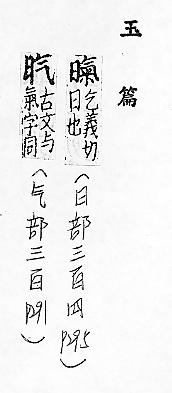 玉篇
𣊠乞義切日也(日部三百四p295)
㫓古文与氣字同(气部三百p291)